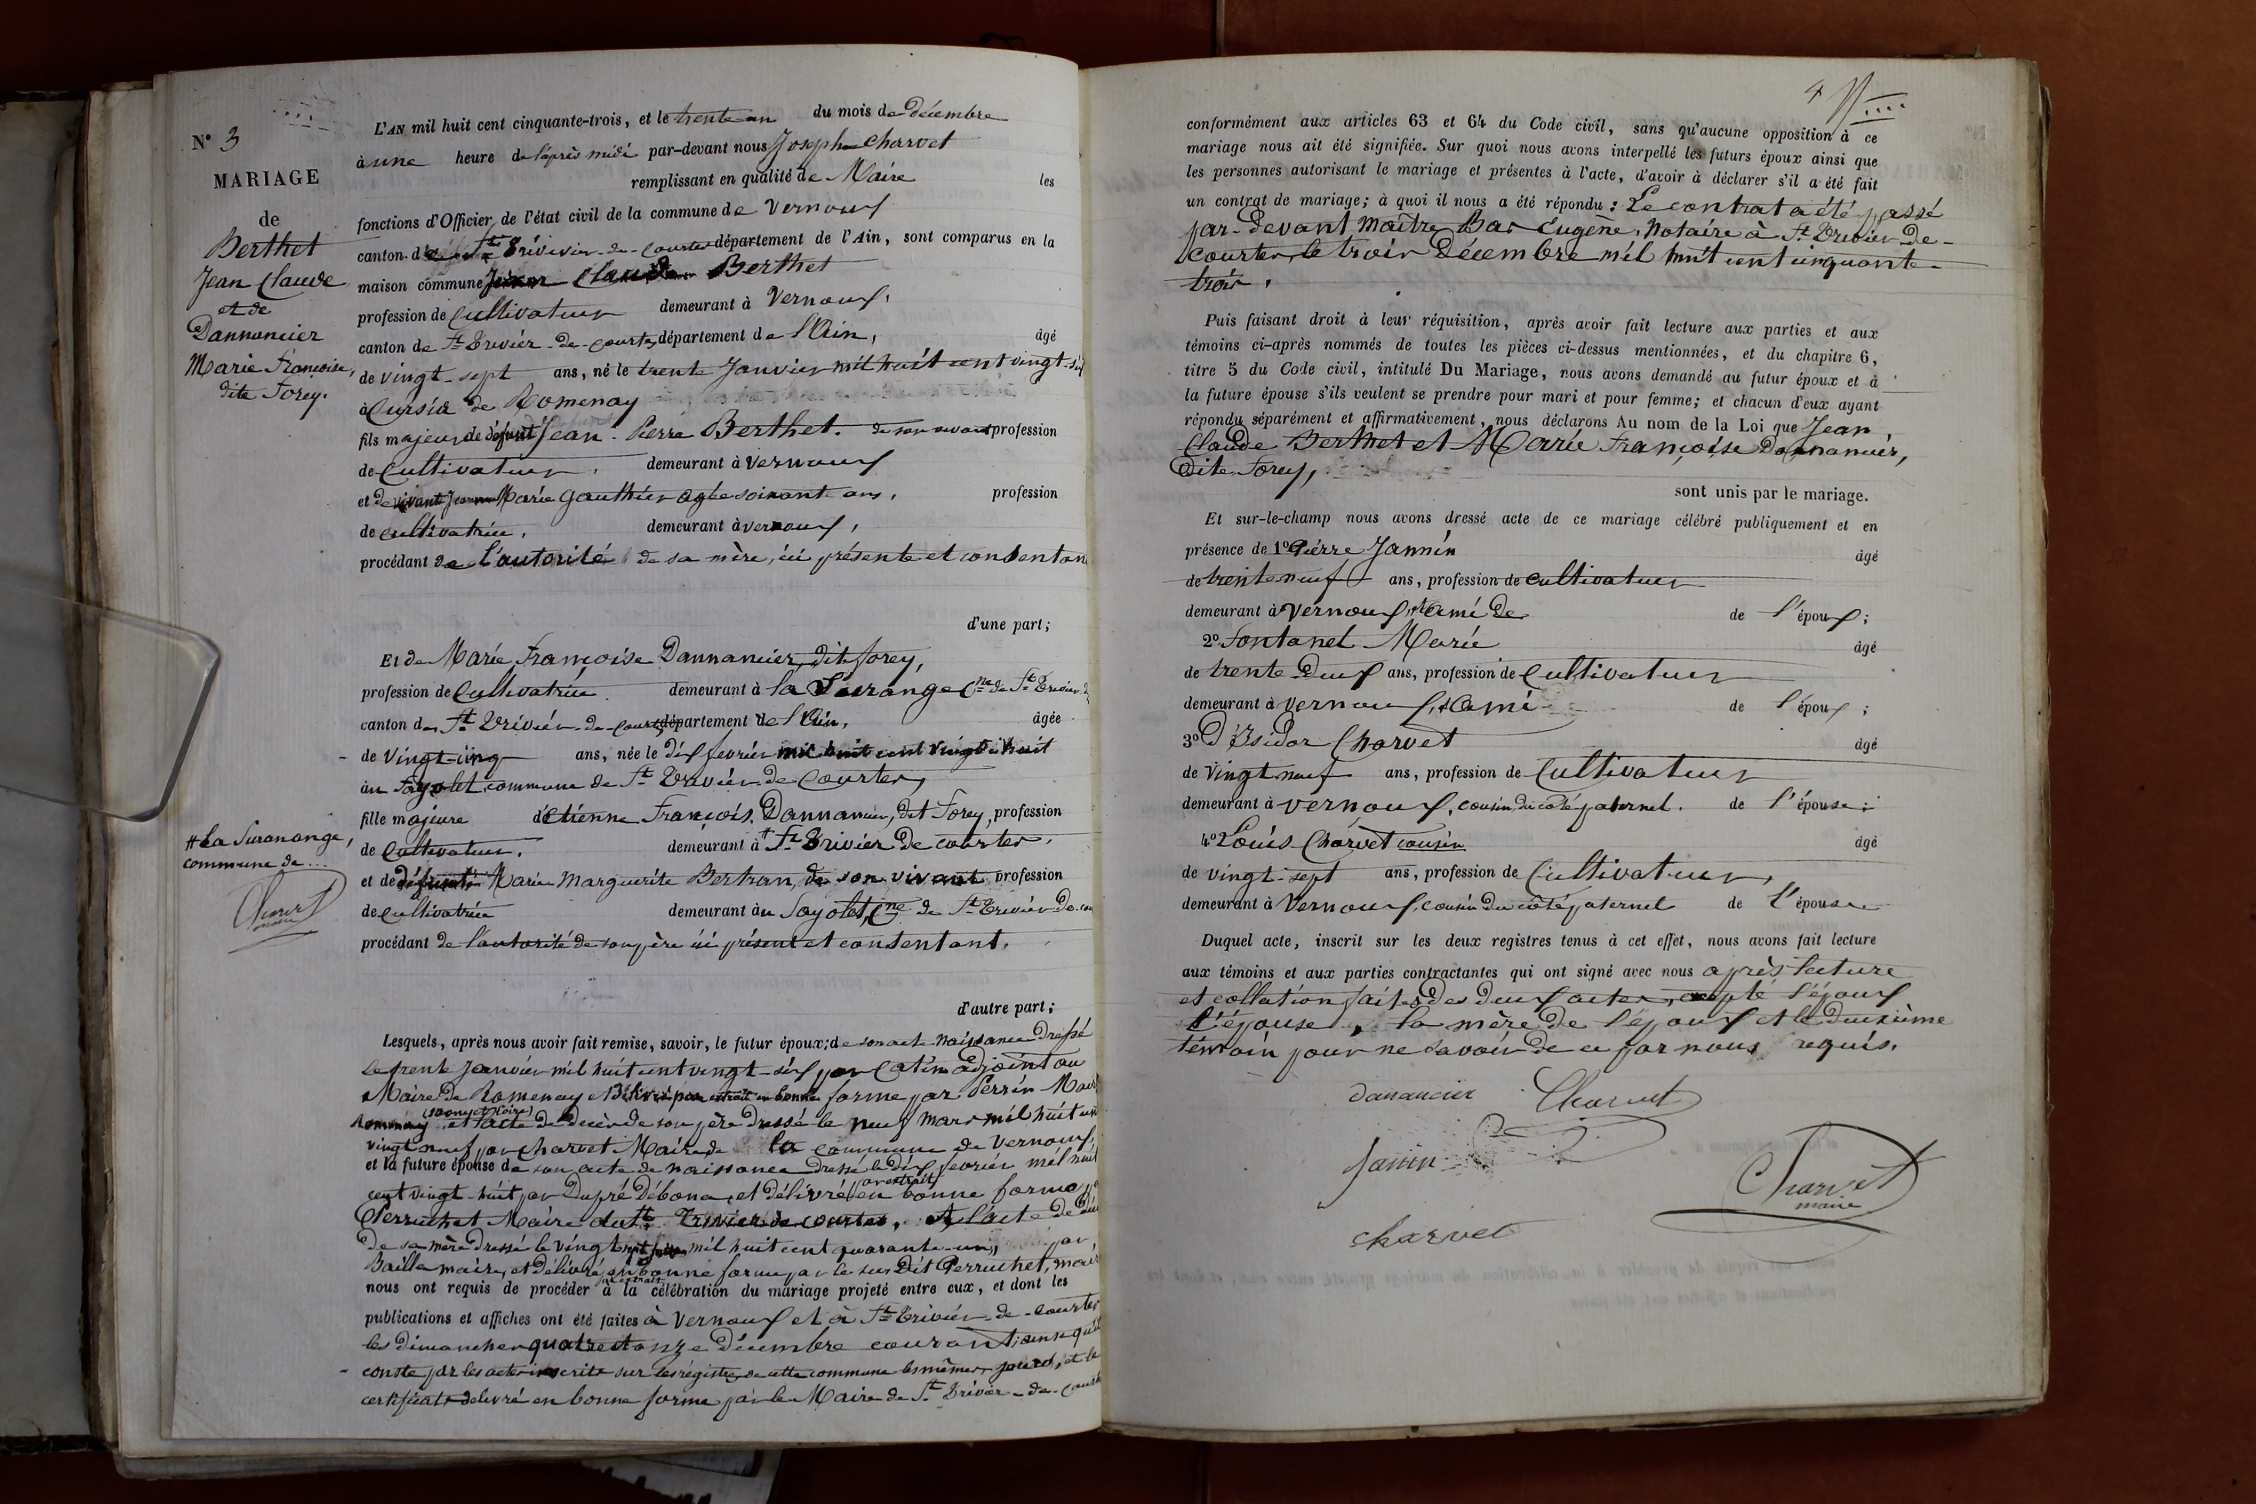 N° 3
MARIAGE
de
Berthet
Jean Claude
et de
Dannancier
Marie Françoise,
dite Forey.
L'AN mil huit cent cinquante-trois, et le trente un du mois de décembre
à une heure de l'après midi par-devant nous Joseph Charvet
remplissant en qualité de Maire les
fonctions d'Officier de l'état civil de la commune de Vernoux
canton de St Trivier-de-Courtes département de l'Ain, sont comparus en la
maison commune Jean Claude Berthet
profession de Cultivateur demeurant à Vernoux,
canton de St Trivier-de-Courtes, département de l'Ain, âgé
de vingt-sept ans, né le trente Janvier mil huit cent vingt-six
à Cursia de Romenay
fils majeur de défunt Jean-Pierre Berthet. de son vivant profession
de Cultivateur. demeurant à Vernoux
et de vivante Jeanne Marie Gauthier agée soixante ans, profession
de cultivatrice, demeurant à Vernoux,
procédant de l'autorité de sa mère, ici présente et consentante
d'une part;
Et de Marie Françoise Dannancier, dite forey,
profession de Cultivatrice demeurant à la Cne de St Trivier
canton de St Trivier-de-Courtes département de l'Ain, âgée
de Vingt-cinq ans, née le dix fevrier mil huit cent vingt-huit
au Fayolet commune de St Trivier-de Courtes,
fille majeure d'Etienne François Dannancier, dit Forey, profession
de Cultivateur. demeurant à # St Trivier de courtes,
et de défunte Marie Marguerite Bertran, de son vivant profession
de Cultivatrice demeurant au Fayolet, Cne de St Trivier-de-cou
procédant de l'autorité de son père ici présent et consentant.
# La Suranange,
commune de
Charvet
maire
d'autre part;
Lesquels, après nous avoir fait remise, savoir, le futur époux; de son acte naissance dressé
le trente Janvier mil huit cent vingt-six par Catin adjoint au
Maire de Romenay et délivré par extrait en bonne forme par Perrin Maire
Romenay (Saone et Loire) et l'acte de decès de son père dressé le neuf mars mil huit cent
vingt neuf par Charvet Maire de la commune de Vernoux,
et la future épouse de son acte de naissance dressé le dix fevrier mil huit
cent vingt-huit par Dupré Débona, et délivré par extrait en bonne forme
Perruchet Maire de St Trivier de courtes, et l'acte de
de sa mère dressé le vingt mil huit cent quarante-un, par
Baille maire, et délivré par extrait en bonne forme par le sus dit Perruchet, maire
nous ont requis de procéder à la célébration du mariage projeté entre eux, et dont les
publications et affiches ont été faites à Vernoux et à St Trivier-de-Courtes
les dimanches quatre et onze décembre courant, ainsi qu'il
conste par les actes inscrits sur les régistres de cette commune les mêmes jours, et le
certificat delivré en bonne forme par le Maire de St Trivier-de-Courtes
4
conformément aux articles 63 et 64 du Code civil, sans qu'aucune opposition à ce
mariage nous ait été signifiée. Sur quoi nous avons interpellé les futurs époux ainsi que
les personnes autorisant le mariage et présentes à l'acte, d'avoir à déclarer s'il a été fait
un contrat de mariage; à quoi il nous a été répondu: Le contrat a été passé
par-devant Maître Bas Eugène, Notaire à St Trivier-de-
Courtes le trois Décembre mil huit cent cinquante-
trois.
Puis faisant droit à leur réquisition, après avoir fait lecture aux parties et aux
témoins ci-après nommés de toutes les pièces ci-dessus mentionnées, et du chapitre 6,
titre 5 du Code civil, intitulé Du Mariage, nous avons demandé au futur époux et à
la future épouse s'ils veulent se prendre pour mari et pour femme; et chacun d'eux ayant
répondu séparément et affirmativement, nous déclarons Au nom de la Loi que Jean
Claude Berthet et Marie Françoise Dannancier,
dite Forey,
sont unis par le mariage.
Et sur-le-champ nous avons dressé acte de ce mariage célébré publiquement et en
présence de 1° Pierre Jannin âgé
de trente neuf ans, profession de cultivateur
demeurant à Vernoux, ami de de l'époux;
2° Fontanel Marie âgé
de trente-deux ans, profession de Cultivateur
demeurant à Vernoux, ami de l'époux;
3° d'Isidor Charvet âgé
de Vingt neuf ans, profession de Cultivateur
demeurant à Vernoux, cousin du côté paternel. de l'épouse;
4° Louis Charvet cousin âgé
de vingt-sept ans, profession de Cultivateur,
demeurant à Vernoux, cousin du côté paternel de l'épouse
Duquel acte, inscrit sur les deux registres tenus à cet effet, nous avons fait lecture
aux témoins et aux parties contractantes qui ont signé avec nous après lecture
et collation faites des deux actes, excepté l'époux
l'épouse, la mère de l'époux et le deuxième
témoin pour ne savoir de ce par nous requis.
Danancier Charvet
Janin
Charvet
maire
charvet